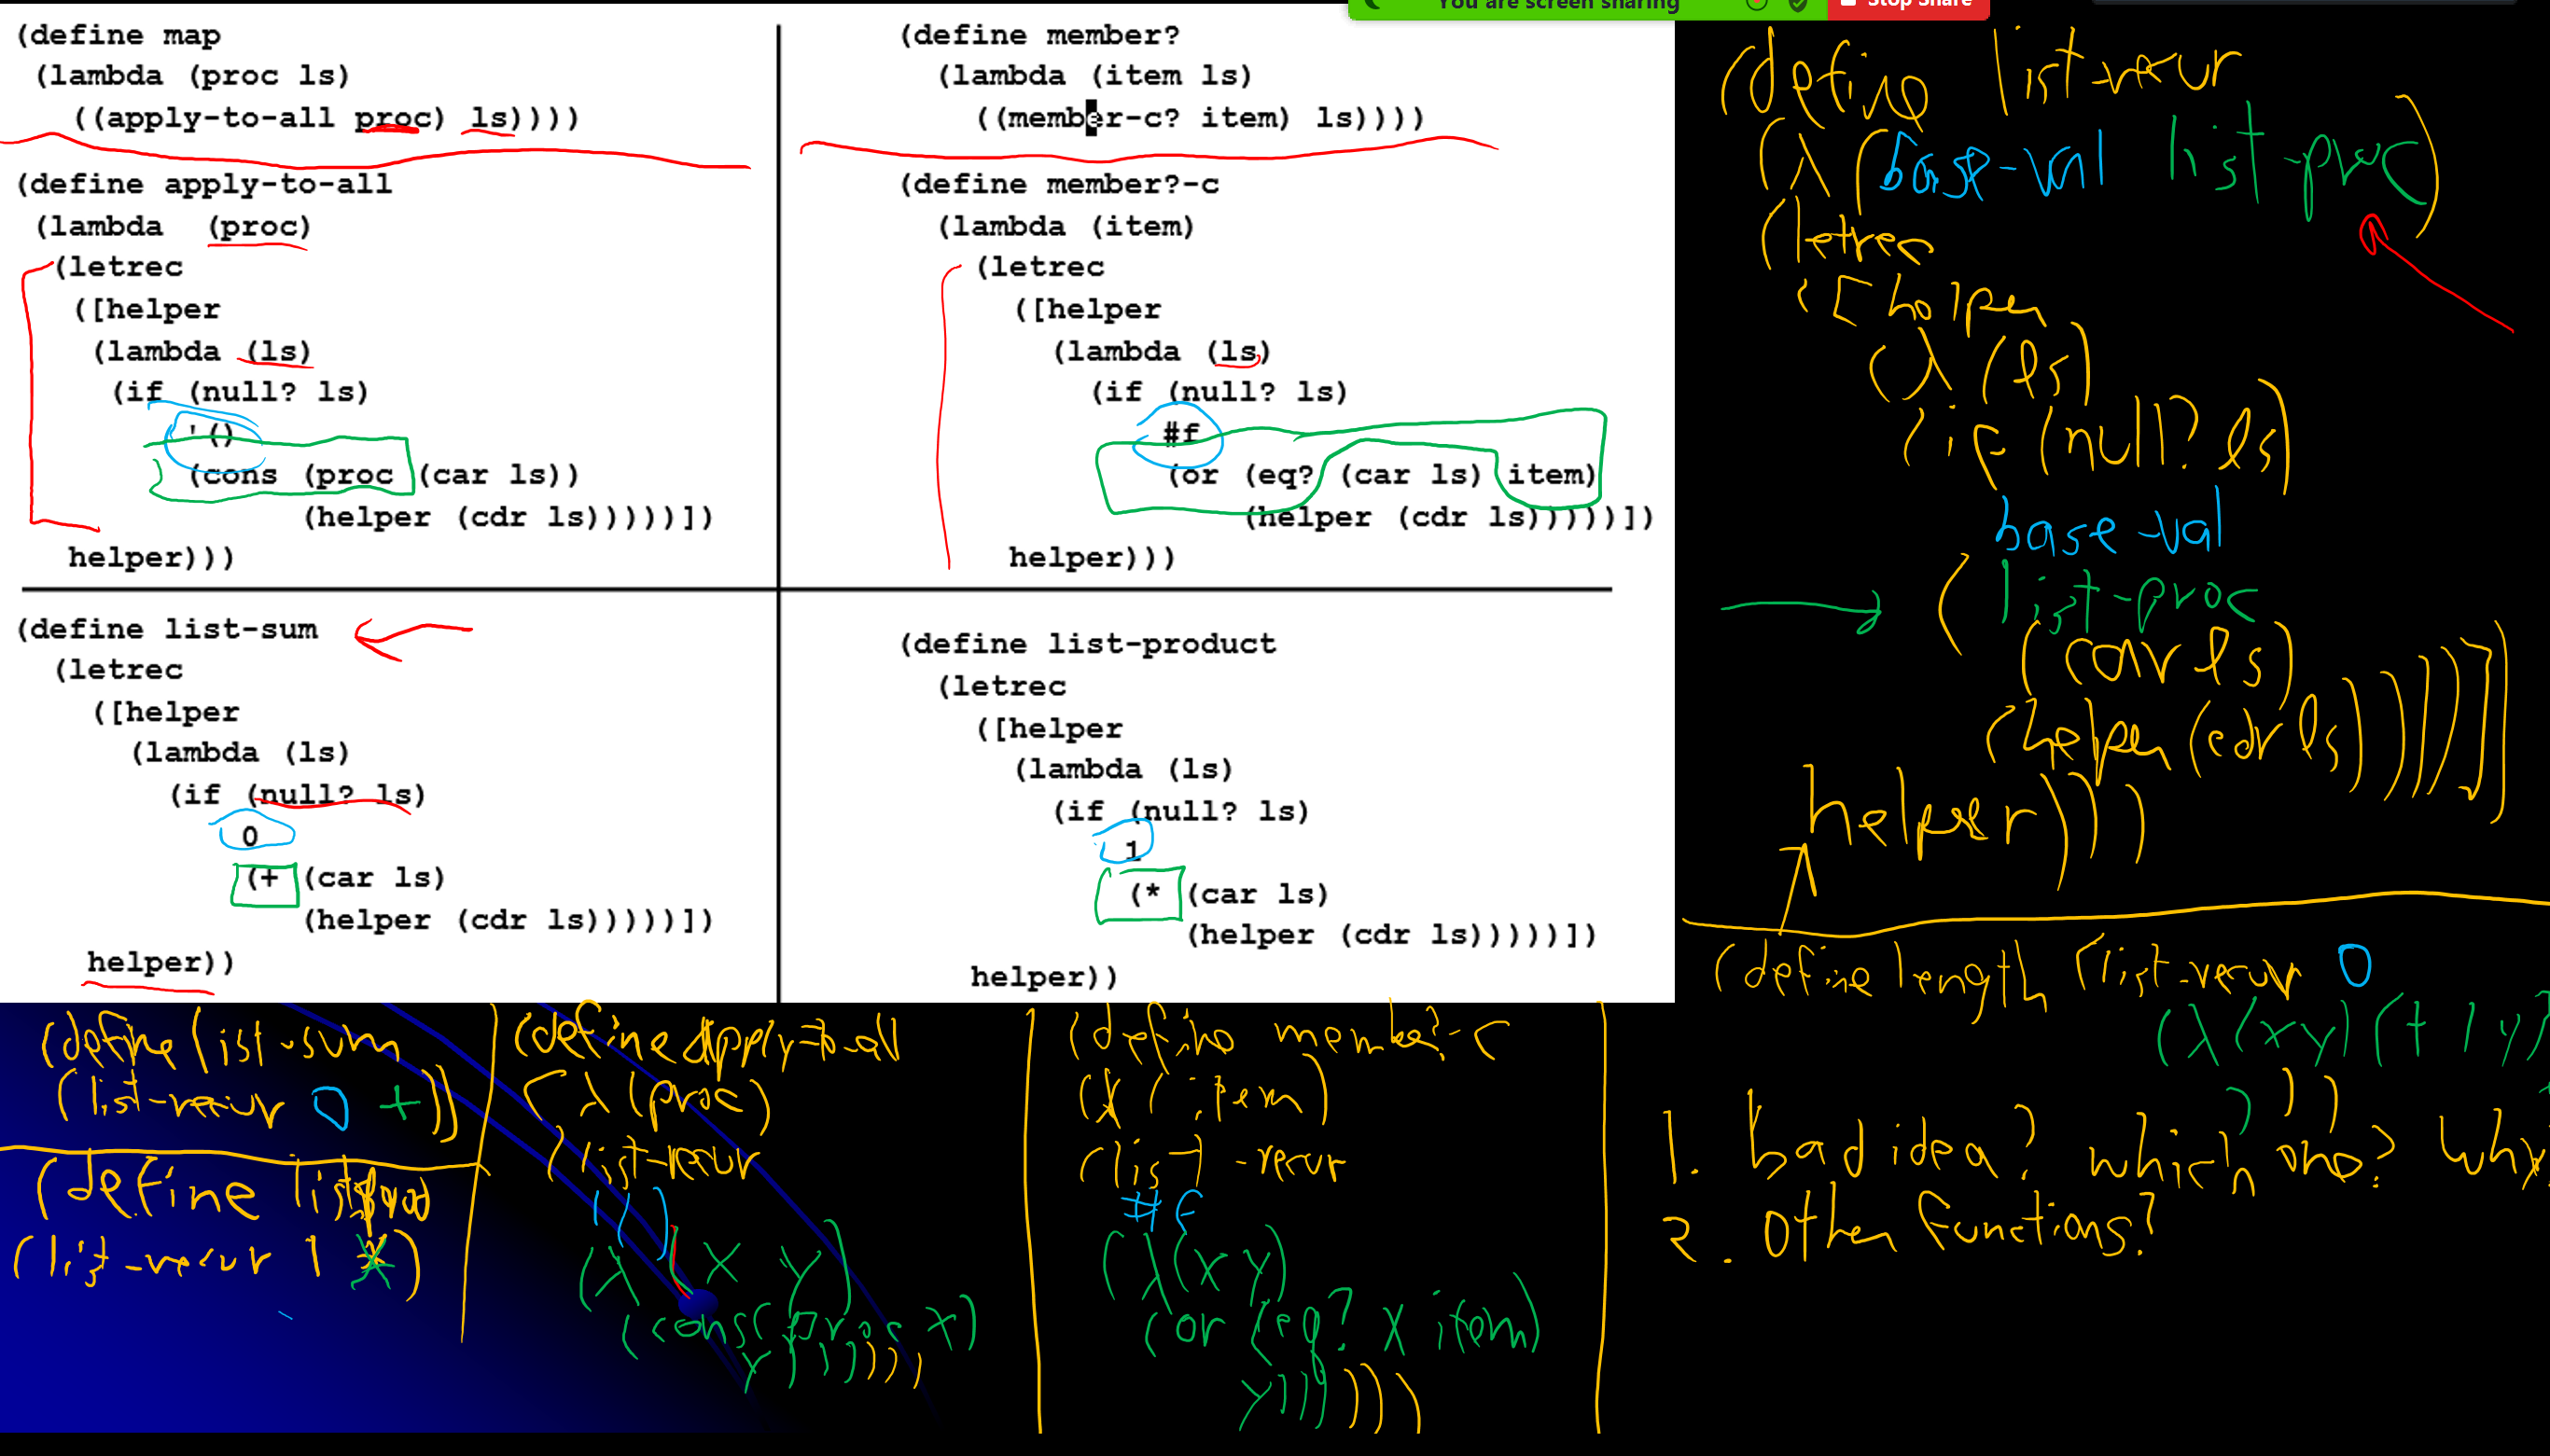 You are screen sharing
Stop Share
(define map
(lambda (proc ls)
((apply-to-all proc) ls))))
(define apply-to-all
(lambda (proc)
(letrec
([helper
(lambda (ls)
(if (null? ls)
'()
(cons (proc (car ls))
(helper (cdr ls)))))])
helper)))
(define member?
(lambda (item ls)
((member-c? item) ls))))
(define member?-c
(lambda (item)
(letrec
([helper
(lambda (ls)
(if (null? ls)
#f
(or (eq? (car ls) item)
(helper (cdr ls)))))])
helper)))
(define list-sum
(letrec
([helper
(lambda (ls)
(if (null? ls)
0
(+ (car ls)
(helper (cdr ls)))))])
helper))
(define list-product
(letrec
([helper
(lambda (ls)
(if (null? ls)
1
(* (car ls)
(helper (cdr ls)))))])
helper))
(define list-recur
(λ (base-val list-proc)
(letrec
([helper
(λ (ls)
(if (null? ls)
base-val
(list-proc
(car ls)
(helper (cdr ls)))))])
helper)))
(define length (list-recur 0
(λ (x y) (+ 1 y)
)))
1. Bad idea? which one? Why
2. Other functions?
(define list-sum
(list-recur 0 +))
(define list-prod
(list-recur 1 *)
(define apply-to-all
(λ (proc)
(list-recur
'()
(λ (x y)
(cons (proc x)
y))))))
(define member?-c
(λ (item)
(list-recur
#f
(λ (x y)
(or (eq? x item)
y))))))